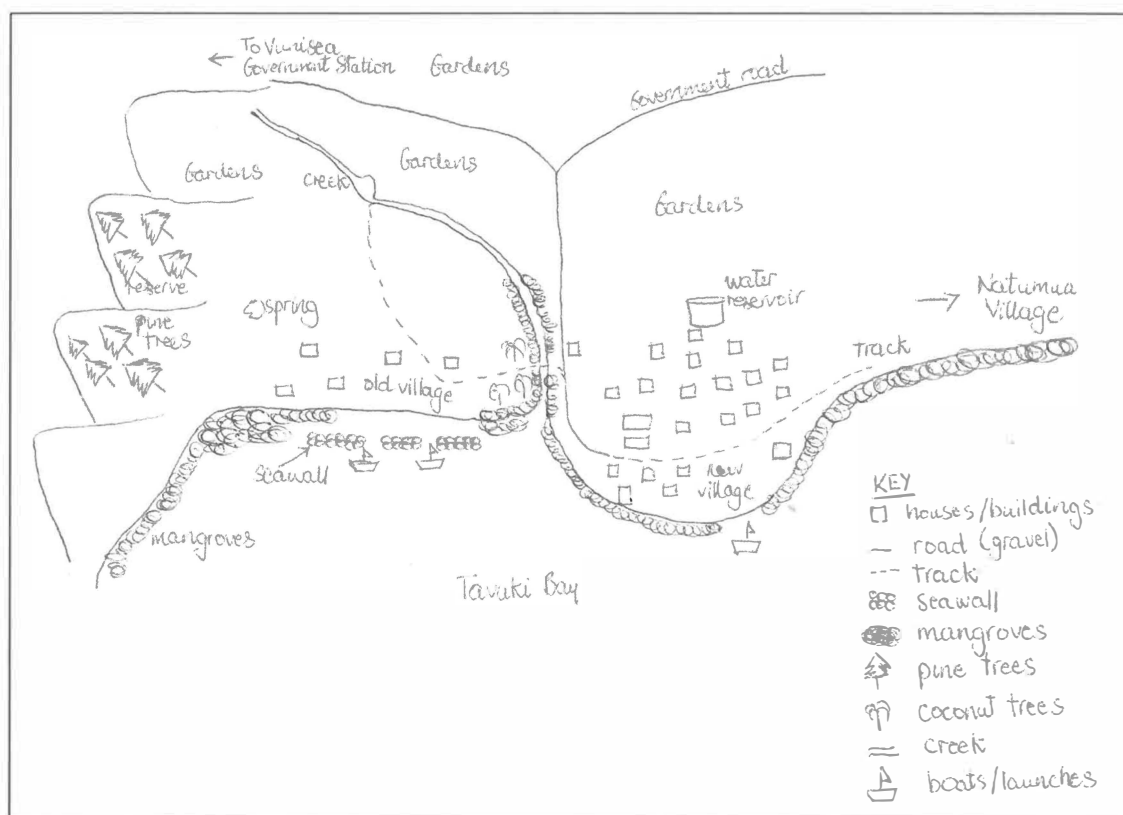 To Vunisea
Government Station
Gardens
Government road
Gardens
Gardens
creek
Gardens
reserve
water
reservoir
Natumua
Village
spring
pine
trees
track
old village
seawall
new
village
mangroves
Tavuki Bay
KEY
houses/buildings
road (gravel)
track
seawall
mangroves
pine trees
coconut trees
creek
boats/launches